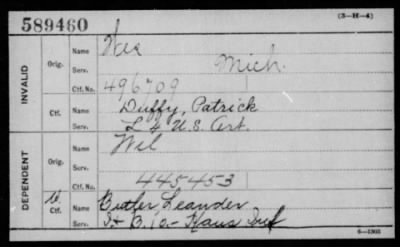 589460
(3-H-4)
INVALID
Orig.
Name
Serv. Mich.
Ctf. No. 496709
Ctf.
Name Duffy, Patrick
Serv. L 4 U.S. Art.
DEPENDENT
Orig.
Name Wil
Serv.
Ctf. No. 445453
Ctf.
Name Butler Leander
Serv. 10 - Kans Inf
6-1303